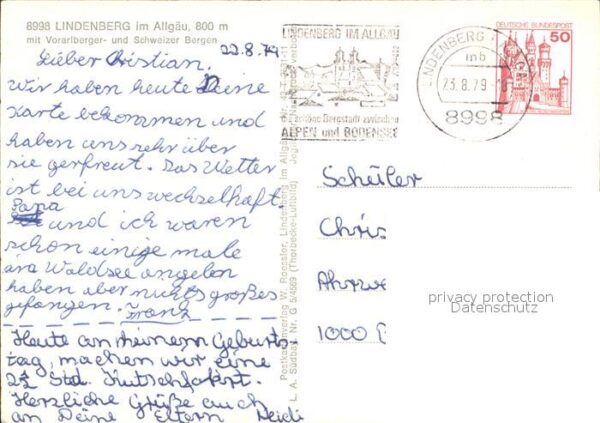 8998 LINDENBERG im Allgäu, 800 m
mit Vorarlberger- und Schweizer Bergen
22.8.79
Lieber Christian.
Wir haben heute Deine
Karte bekommen und
haben uns sehr über
sie gerfreut. Das Wetter
ist bei uns wechselhaft
Papa
und ich waren
schon einige male
am Waldsee angeln
haben aber nichts großes
gefangen. Frank
Heute an meinem Geburts-
tag, machen wir eine
2½ Std. Kutschfahrt.
Herzliche Grüße auch
an Deine Eltern Heidi
Postkartenverlag W. Roessler, Lindenberg im Allgäu
L. A. Südbad. Nr. G 5/4589 (Thorbecke-Luftbild)
LINDENBERG IM ALLGÄU
Bergstadt zwischen
ALPEN und BODENSEE
LINDENBERG
mb
23.8.79
8998
DEUTSCHE BUNDESPOST
50
Schüler
Chris
Ahrwe
1000
privacy protection
Datenschutz